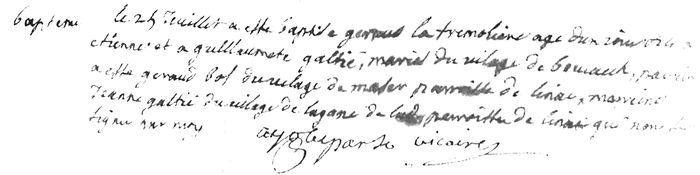 bapteme le 25 Juillet a este baptise geraud la tremoliere age dun jour
etienne et a guillaumete galtié, mariés du vilage de
a este geraud bos du vilage de parroisse de linac, marreine
Jeanne galtié du vilage de lagane de parroisse de linac qui nont
signé
vicaire